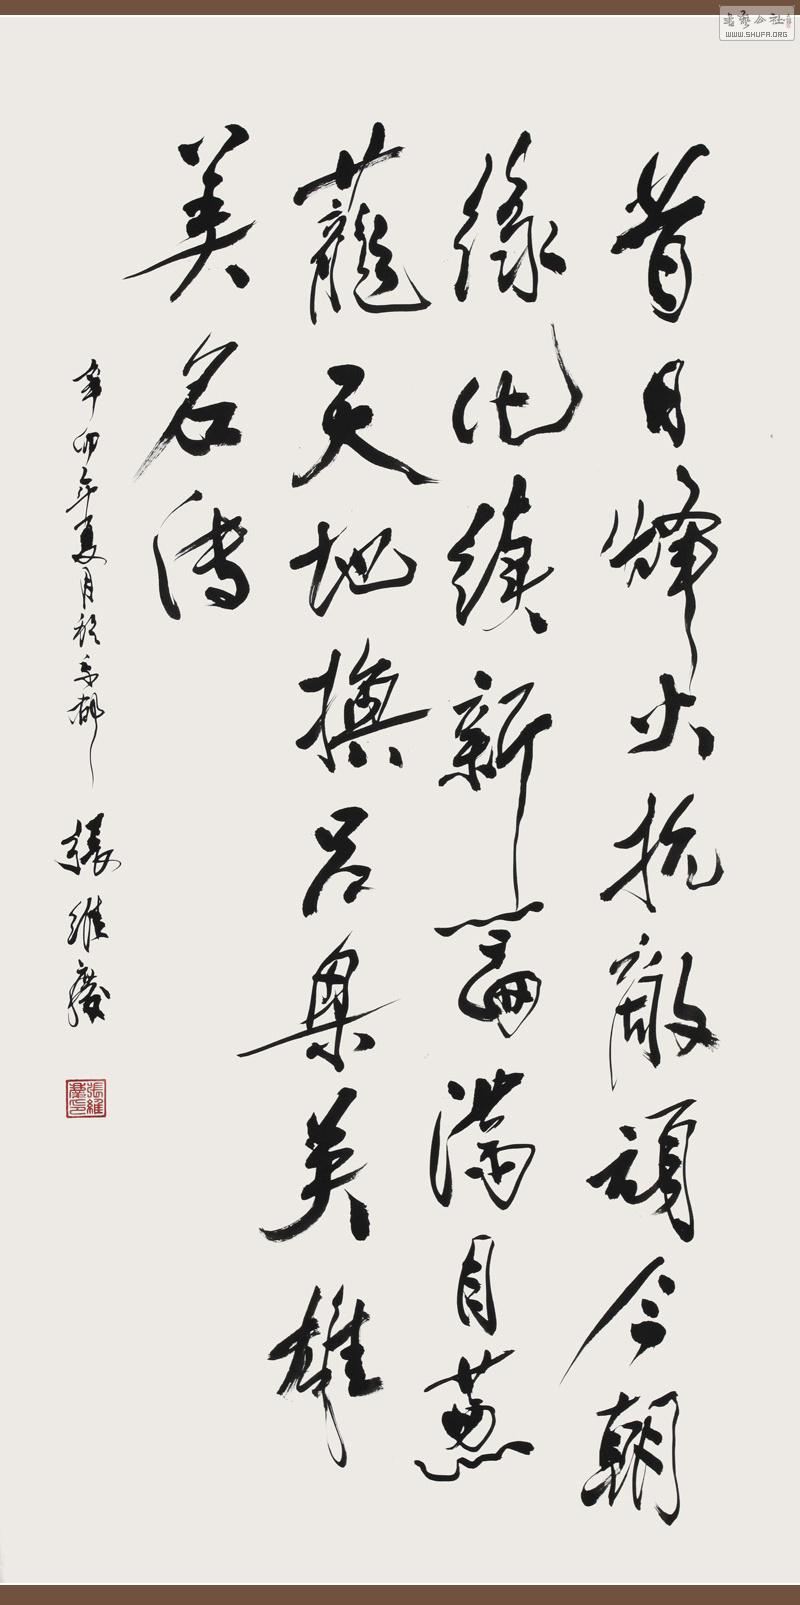 昔日烽火抗敵頑今朝
綠化續新篇滿目蔥
蘢天地換呂梁英雄
美名傳
辛卯年夏月於京都 張維慶
張維慶印
書藝公社
WWW.SHUFA.ORG